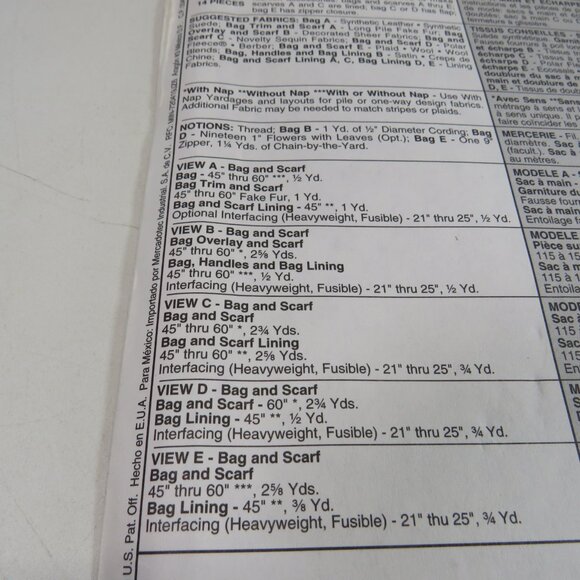 14 PIECES
scarves A and C are lined; bag C or D has flap,
bag E has zipper closure.
SUGGESTED FABRICS: Bag A - Synthetic Leather • Synthetic
Suede; Bag Trim and Scarf A - Long Pile Fake Fur; Bag
Overlay and Scarf B - Decorated Sheer Fabrics; Bag and
Scarf C - Novelty Sequin Fabrics; Bag and Scarf D -
Fleece® • Berber; Bag and Scarf E - Plaid • Wool
Blends; Bag, Handles and Bag Lining B - Satin • Crepe de
Chine; Bag and Scarf Lining A, C, Bag Lining D, E - Lining
Fabrics.
*With Nap **Without Nap ***With or Without Nap - Use With
Nap Yardages and layouts for pile or one-way design fabrics.
Additional Fabric may be needed to match stripes or plaids.
NOTIONS: Thread; Bag B - 1 Yd. of ½" Diameter Cording; Bag
D - Nineteen 1" Flowers with Leaves (Opt.); Bag E - One 9"
Zipper, 1¼ Yds. of Chain-by-the-Yard.
VIEW A - Bag and Scarf
Bag - 45" thru 60" ***, ½ Yd.
Bag Trim and Scarf
45" thru 60" Fake Fur, 1 Yd.
Bag and Scarf Lining - 45" **, 1 Yd.
Optional Interfacing (Heavyweight, Fusible) - 21" thru 25", ½ Yd.
VIEW B - Bag and Scarf
Bag Overlay and Scarf
45" thru 60" *, 2⅝ Yds.
Bag, Handles and Bag Lining
45" thru 60" ***, ½ Yd.
Interfacing (Heavyweight, Fusible) - 21" thru 25", ½ Yd.
VIEW C - Bag and Scarf
Bag and Scarf
45" thru 60" *, 2¾ Yds.
Bag and Scarf Lining
45" thru 60" **, 2⅝ Yds.
Interfacing (Heavyweight, Fusible) - 21" thru 25", ¾ Yd.
VIEW D - Bag and Scarf
Bag and Scarf - 60" *, 2¾ Yds.
Bag Lining - 45" **, ½ Yd.
Interfacing (Heavyweight, Fusible) - 21" thru 25", ¾ Yd.
VIEW E - Bag and Scarf
Bag and Scarf
45" thru 60" ***, 2⅝ Yds.
Bag Lining - 45" **, ⅜ Yd.
Interfacing (Heavyweight, Fusible) - 21" thu 25", ¾ Yd.
U.S. Pat. Off. Hecho en E.U.A. Para México: Importado por Mercadotec Industrial, S.A. de C.V.
TISSUS CONSEILLES
*Avec Sens **Sans
métrage à sens et
à sens unique.
faire coïncider les
MERCERIE - Fil
diamètre. Sac
(facult.). Sac à
au mètre.
MODELE A -
Sac à main -
Garniture du
Fausse four
Sac à main
Entoilage f
MODELE
Pièce su
115 à 15
Sac à m
115 à 1
Entoil
MODE
Sac à
115
Sac
115
Ent
M
S